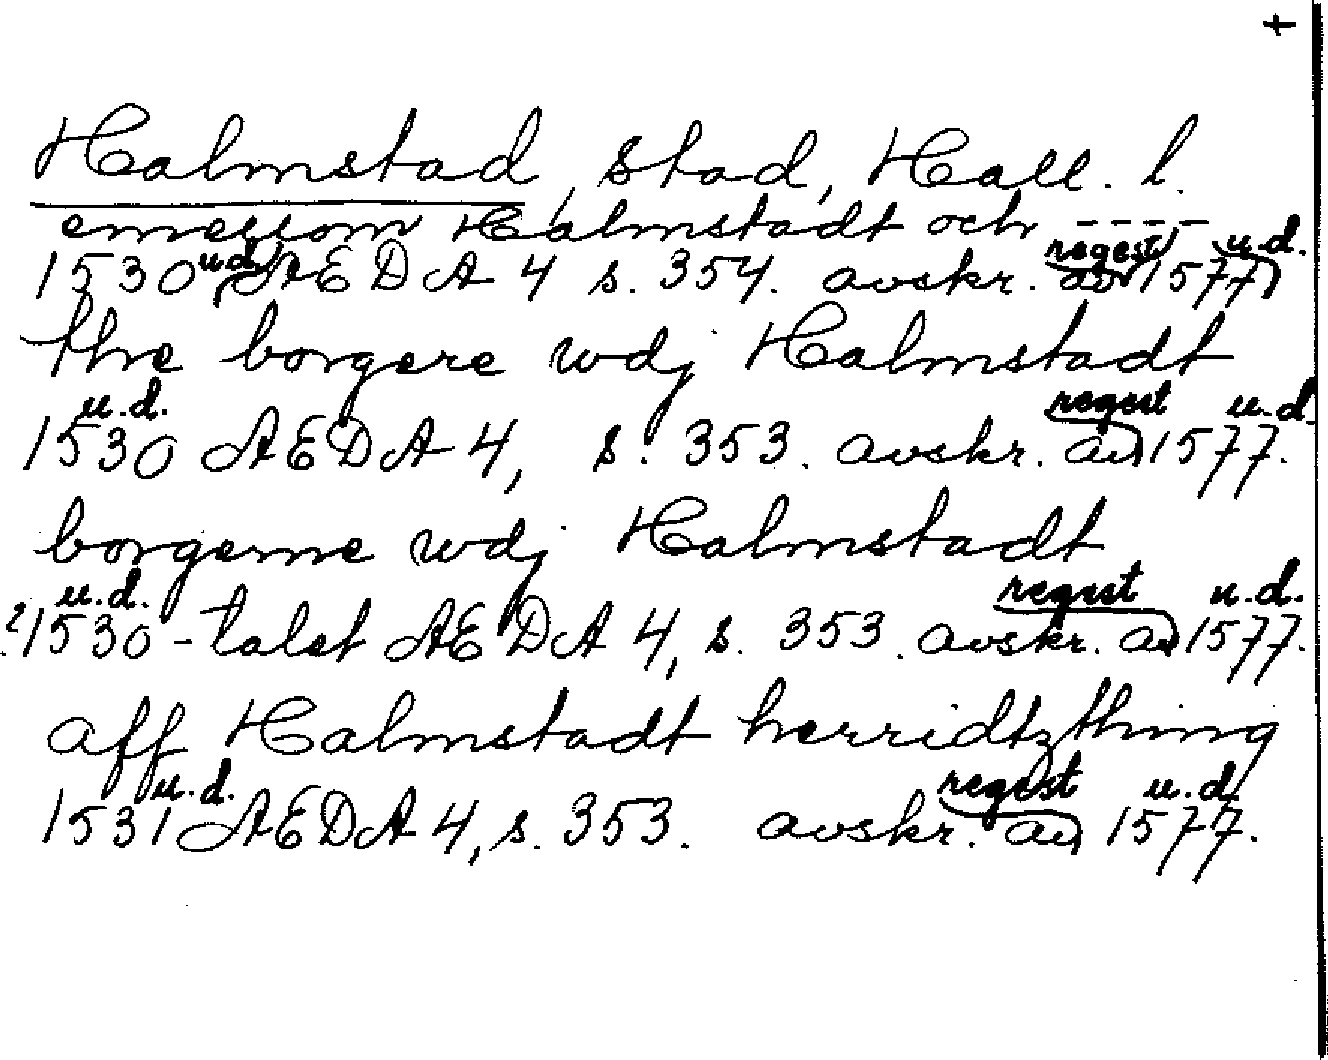 +
Halmstad, stad, Hall. l.
emellom Halmstadt och ----
1530 u.d. AEDA 4 s. 354. avskr. av regest 1577 u.d.
thre borgere wdj Halmstadt
1530 u.d. AEDA 4, s. 353. avskr. av regest 1577 u.d.
borgerne wdj Halmstadt
?1530-talet u.d. AEDA 4, s. 353. avskr. av regest 1577 u.d.
aff Halmstadt herridtzthing
1531 u.d. AEDA 4, s. 353. avskr. av regest 1577 u.d.